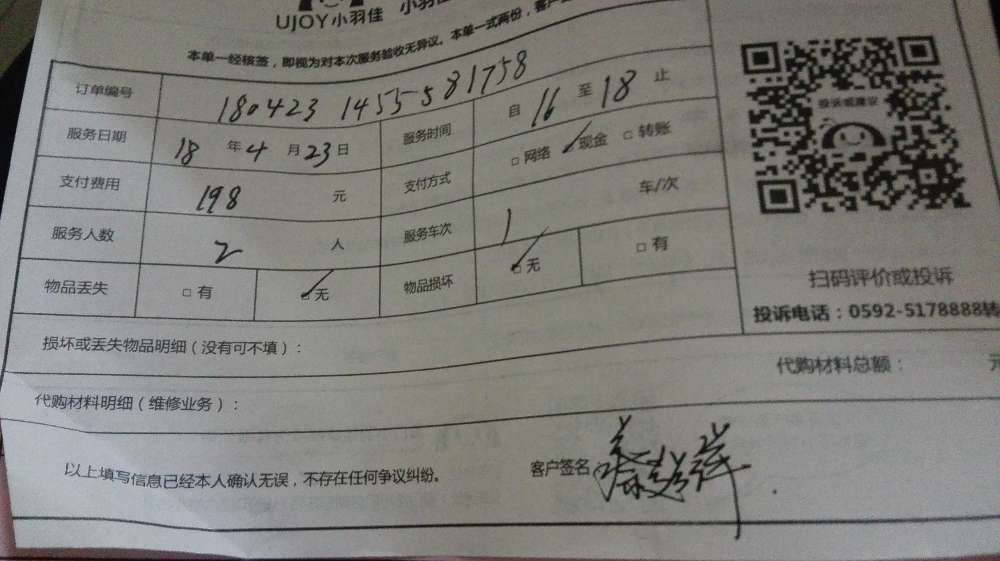 UJOY小羽佳 小羽佳
本单一经核签，即视为对本次服务验收无异议。本单一式两份，客户
订单编号 180423 1455581758
服务日期 18 年 4 月 23 日 服务时间 自 16 至 18 止
支付费用 198 元 支付方式 □ 网络 ✓ 现金 □ 转账
服务人数 2 人 服务车次 1 车/次
物品丢失 □ 有 ☑ 无 物品损坏 ☑ 无 □ 有
投诉或建议
扫码评价或投诉
投诉电话：0592-5178888转
损坏或丢失物品明细（没有可不填）：
代购材料明细（维修业务）： 代购材料总额： 元
以上填写信息已经本人确认无误，不存在任何争议纠纷。 客户签名